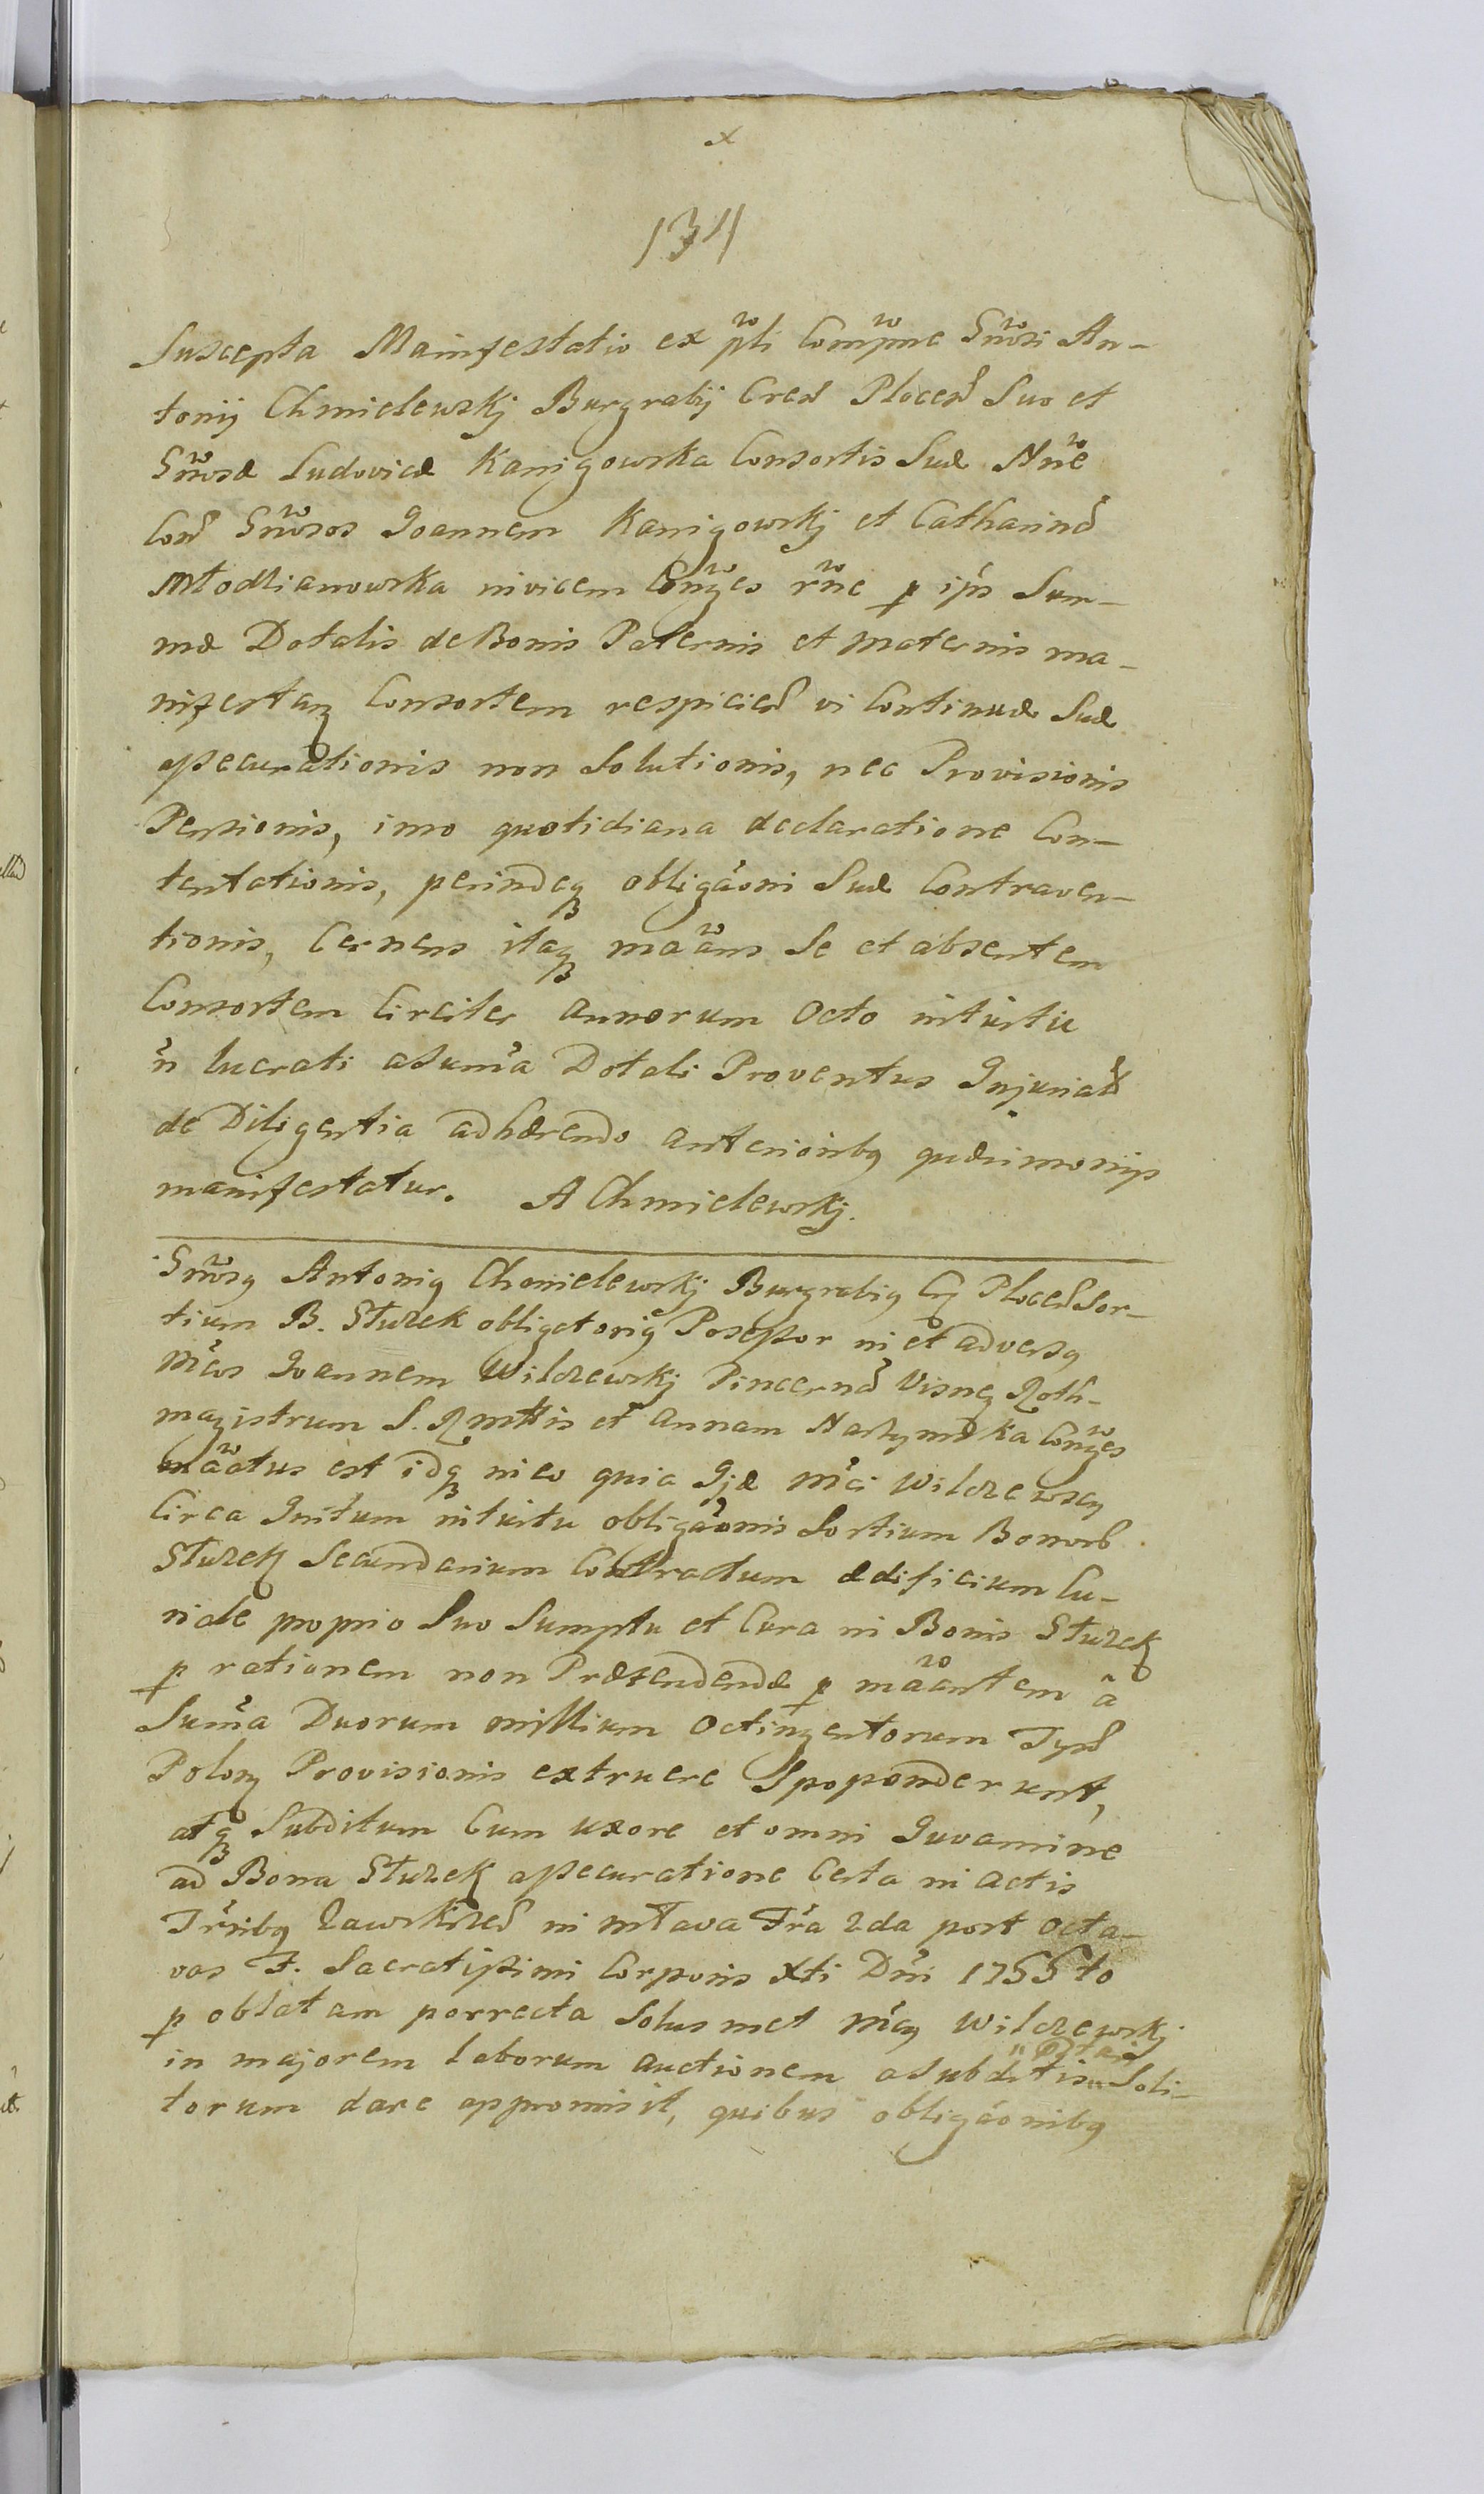 x
134
Suscepta Manifestatio ex pti Compne Gnrosi An-
tonij Chmielewskj Burgrabij Cren Plocen Suo et
Gnrosæ Ludovicæ Kanigowska Consortis Suæ Nne
Con Gnrosos Joannem Kanigowskj et Catharina
Młodzianowska invicem Conges rne p ips Sum-
mæ Dotalis de Bonis Paternis et maternis ma-
nifestanq Consortem respicien vi Continuæ Suæ
assecurationis non Solutionis, nec Provisionis
Pensionis, imo quotidiana declaratione Con-
tentationis, perindeq obligaoni Suæ Contraven-
tionis, Cernens itaq maans Se et absentem
Consortem Circiter annorum Octo intuitu
n lucrati a Suma Dotali Proventus Injuriat
de Diligentia adhærendo anterioribq quærimonijs
manifestatur. A Chmielewskj.
Gnrosq Antoniq Chmielewskj Burgrabiq Plocen Sor-
tium B. Sturek obligatoriq Possessor in et adversq
Mcos Joannem Wilczewskj Pincerna Visnen Roth-
magistrum S. R. Mttis et Annam Conges
maatus est idq in eo quia Ijdæ Mci Wilczewscy
Circa Initum intuitu obligaonis Sortium Bonorum
Sturek Secundarium Contractum ædificium Cu-
riale proprio Suo Sumptu et Cura in Bonis Sturek
p rationem non Prætendendæ p maantem a
Suma Duorum millium Octingentorum Tynf
Polon Provisionis extruere Spoponderunt,
atq Subditum Cum uxore et omni Juvamine
ad Bona Sturek assecuratione Certa in actis
Trribq Zawskrzen in Mlava Fra 2da post Octa-
vas F. Sacratissimi Corporis Xti Dni 1755to
p oblatam porrecta Solusmet Mcq Wilczewskj
in majorem laborum auctionem a Subditis Soli-
torum dare appromisit, quibus obligaonibq